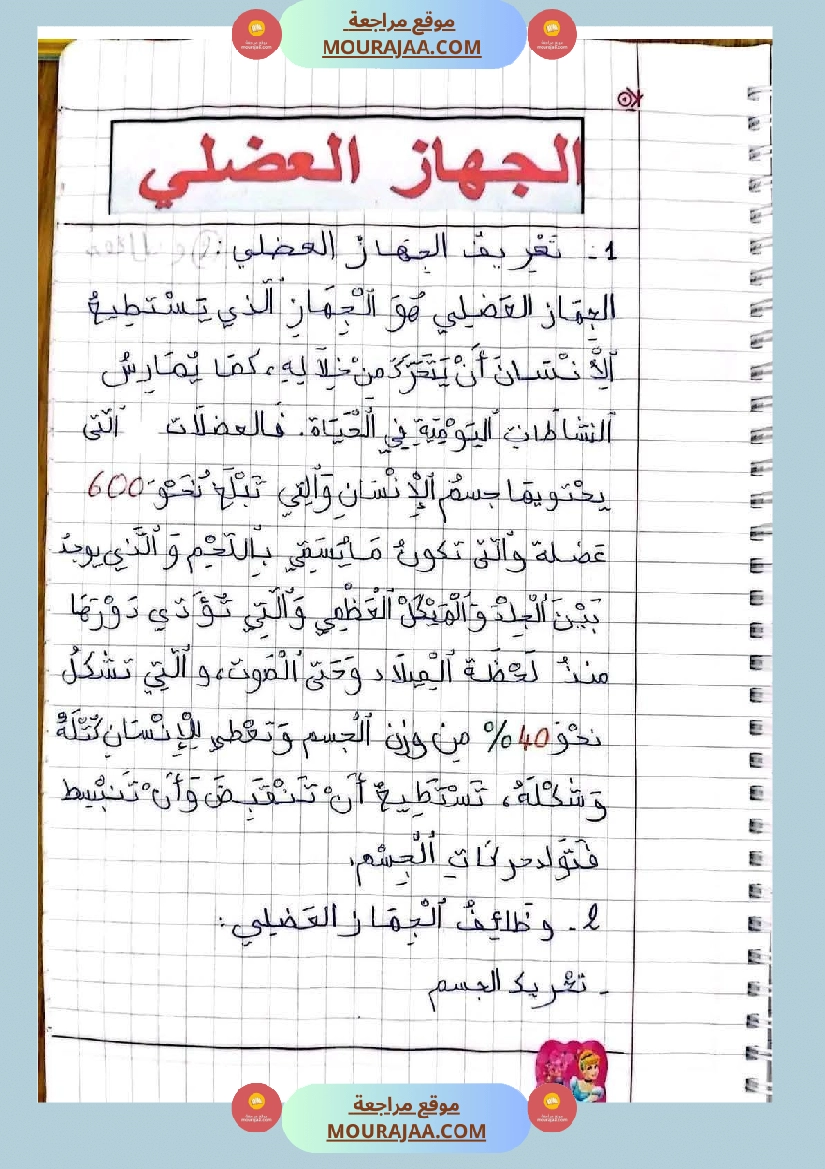 موقع مراجعة
MOURAJAA.COM
الجهاز العضلي
1 - تَعْرِيفُ الجِهَازُ العضلي :
الجِهَاز العَضَلِي هُوَ اَلْجِهَازِ الَّذي يَسْتَطِيعُ
اَلْإِنْسَانَ أَنْ يَتَحَرَّكَ مِنْ خِلَالِهِ، كمَا يُمَارِسُ
اَلنشاطات اليَوْمِيَةِ فِي الْحَيَاة. فَالعضلَات الّتى
يحْتويهَا جسمُ الْإِنْسَانِ وَالتِي تَبْلَغُ نُحَوَ 600
عَضلة والّتى تكونُ مَا يُسَمَّى بِاللَّحْمِ وَ الَّذِي يوجدُ
بَيْنَ اُلْجِلْدْ وَالْهَيْكَلْ الْعُظْمِي وَالَّتِي تُؤَدّي دَوْرَهَا
منذُ لَحْظَة الْمِيلَاد وَحَتى الْمَوت، و الّتِي تشكلُ
نحْوَ 40% مِن وزن الْجسم وَتعْطي لِلْإِنْسَانِ كُتْلَةُ
وَشَكْلَهُ، تَسْتَطِيعُ أَنْ تَنْقَبِضَ وَأَنْ تَنبْسِط
فَتَوَلد حركَاتِ الْجِسْم.
2 - وظَائِفُ اَلْجِهَاز العَضلِي :
- تحْريك الجسم
موقع مراجعة
MOURAJAA.COM